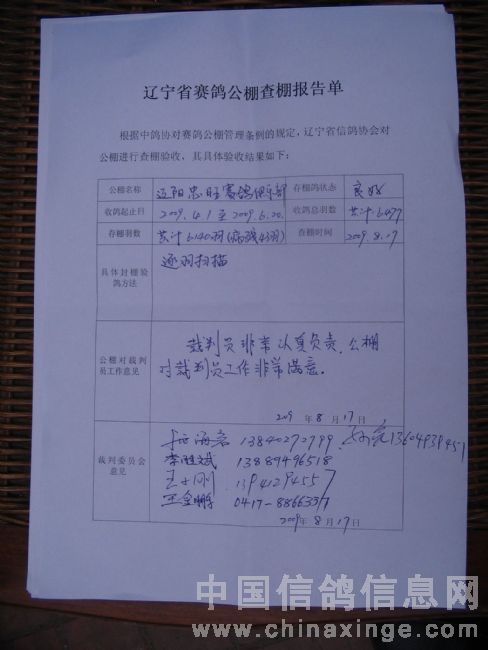 辽宁省赛鸽公棚查棚报告单
根据中鸽协对赛鸽公棚管理条例的规定，辽宁省信鸽协会对
公棚进行查棚验收，其具体验收结果如下：
公棚名称 辽阳忠旺赛鸽俱乐部 存棚鸽状态 良好
收鸽起止日 2009.4.1至2009.6.20. 收鸽总羽数 共计6477
存棚羽数 共计6140羽(病残43羽) 查棚时间 2009.8.17
具体封棚验
鸽方法
逐羽扫描
公棚对裁判
员工作意见
裁判员非常认真负责，公棚
对裁判员工作非常满意。
2009年8月17日
裁判委员会
意见
13840270799
13889496518
王士刚 13941294557
王金鹏 0417-8866357
2009年8月17日
中国信鸽信息网
www.chinaxinge.com